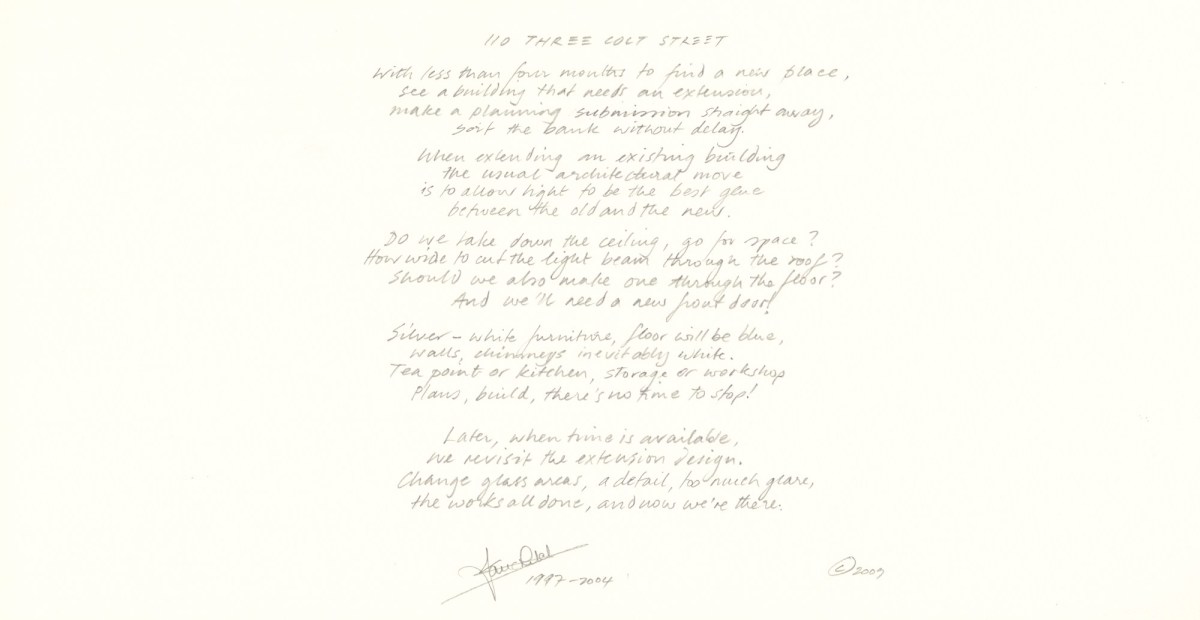 110 THREE COLT STREET
With less than four months to find a new place,
see a building that needs an extension,
make a planning submission straight away,
sort the bank without delay.
When extending an existing building
the usual architectural move
is to allow light to be the best glue
between the old and the new.
Do we take down the ceiling, go for space?
How wide to cut the light beam through the roof?
Should we also make one through the floor?
And we'll need a new front door!
Silver - white furniture, floor will be blue,
walls, chimneys inevitably white.
Tea point or kitchen, storage or workshop
Plans, build, there's no time to stop!
Later, when time is available,
we revisit the extension design.
Change glass areas, a detail, too much glare,
the works all done, and now we're there.
1997-2004
© 2009